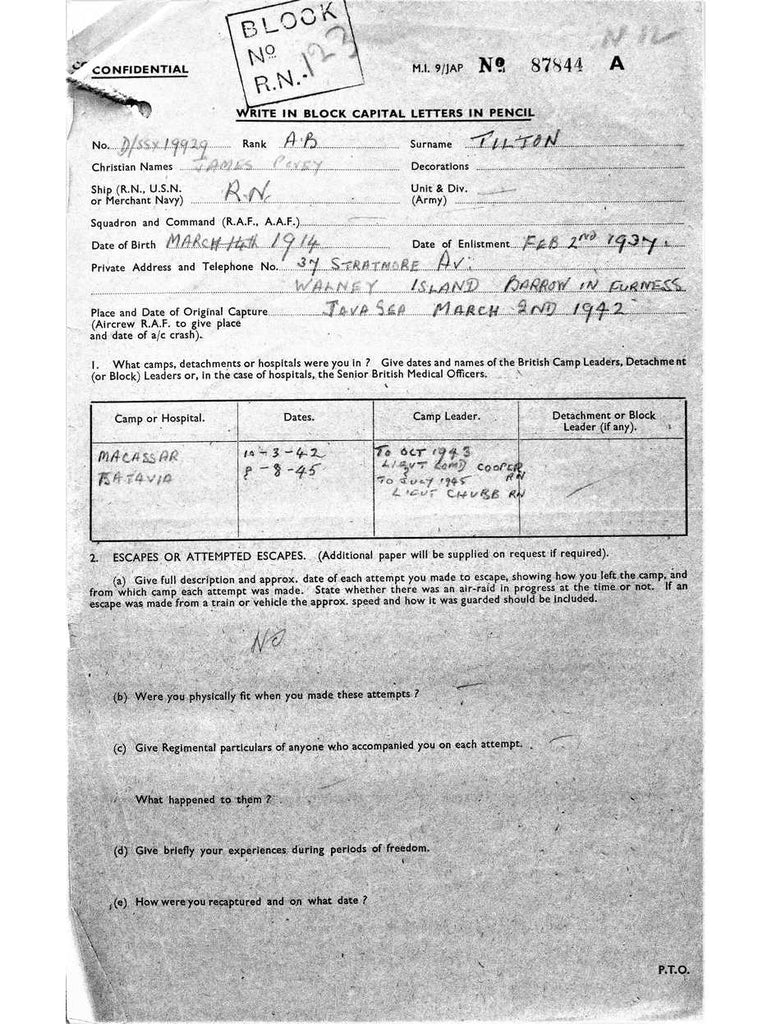 BLOCK
No
R.N. 123
N 12
CONFIDENTIAL
M.I. 9/JAP No 87844 A
WRITE IN BLOCK CAPITAL LETTERS IN PENCIL
No. D/SSX 19929 Rank A.B Surname TILTON
Christian Names JAMES Decorations
Ship (R.N., U.S.N. or Merchant Navy) R.N. Unit & Div. (Army)
Squadron and Command (R.A.F., A.A.F.)
Date of Birth MARCH 14th 1914 Date of Enlistment FEB 2nd 1937.
Private Address and Telephone No. 37 STRATMORE AV:
WALNEY ISLAND BARROW IN FURNESS
Place and Date of Original Capture JAVA SEA MARCH 2ND 1942
(Aircrew R.A.F. to give place
and date of a/c crash).
1. What camps, detachments or hospitals were you in ? Give dates and names of the British Camp Leaders, Detachment
(or Block) Leaders or, in the case of hospitals, the Senior British Medical Officers.
Camp or Hospital. Dates. Camp Leader. Detachment or Block
Leader (if any).
MACASSAR 10-3-42 TO OCT 1943
LIEUT COMD COOPER RN
BATAVIA 8-8-45 TO JULY 1945
LIEUT CHUBB RN
2. ESCAPES OR ATTEMPTED ESCAPES. (Additional paper will be supplied on request if required).
(a) Give full description and approx. date of each attempt you made to escape, showing how you left the camp, and
from which camp each attempt was made. State whether there was an air-raid in progress at the time or not. If an
escape was made from a train or vehicle the approx. speed and how it was guarded should be included.
NO
(b) Were you physically fit when you made these attempts ?
(c) Give Regimental particulars of anyone who accompanied you on each attempt.
What happened to them ?
(d) Give briefly your experiences during periods of freedom.
(e) How were you recaptured and on what date ?
P.T.O.